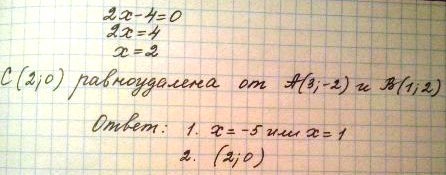 2x-4=0
2x=4
x=2
C(2;0) равноудалена от A(3;-2) и B(1;2)
Ответ: 1. x=-5 или x=1
2. (2;0)